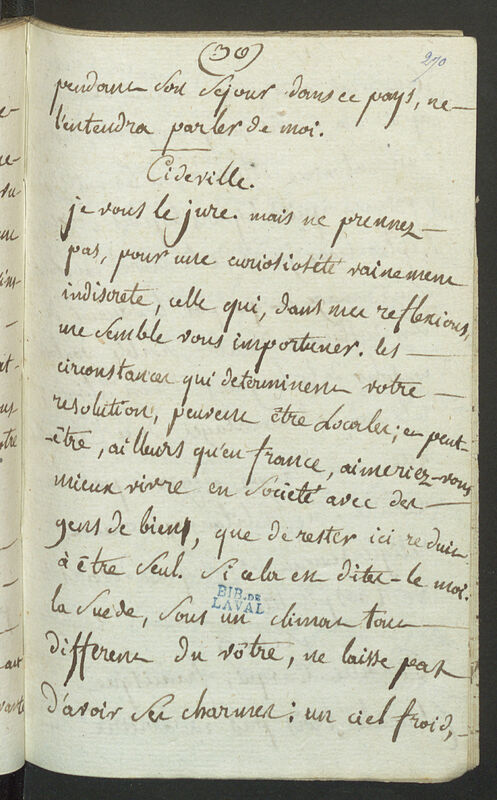 (30)
270
pendant son sejour dans ce pays, ne
l'entendra parler de moi.
Cideville.
je vous le jure. mais ne prennez
pas, pour une curiosiosété vainement
indiscrete, celle qui, dans mes reflexions,
me semble vous importuner. les
circonstances qui determinent votre
resolution, peuvent être Locales; et peut-
-être, ailleurs qu'en france, aimeriez-vous
mieux vivre en Société avec des
gens de biens, que de rester ici reduit
à être seul. Si cela est dites-le moi.
BIB. DE
LAVAL
la Suede, sous un climat tout
different du vôtre, ne laisse pas
d'avoir ses charmes: un ciel froid,